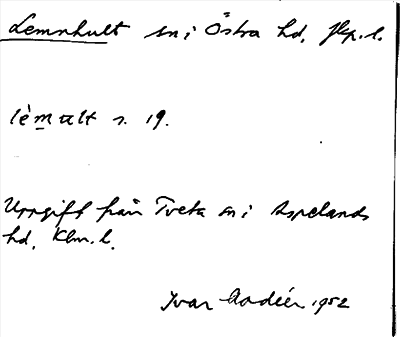 Lemnhult sn i Östra hd, Jkp. l.
lèmalt s. 19.
Uppgift från Tveta sn i Aspelands
hd, Klm. l.
Ivar Modéer 1952